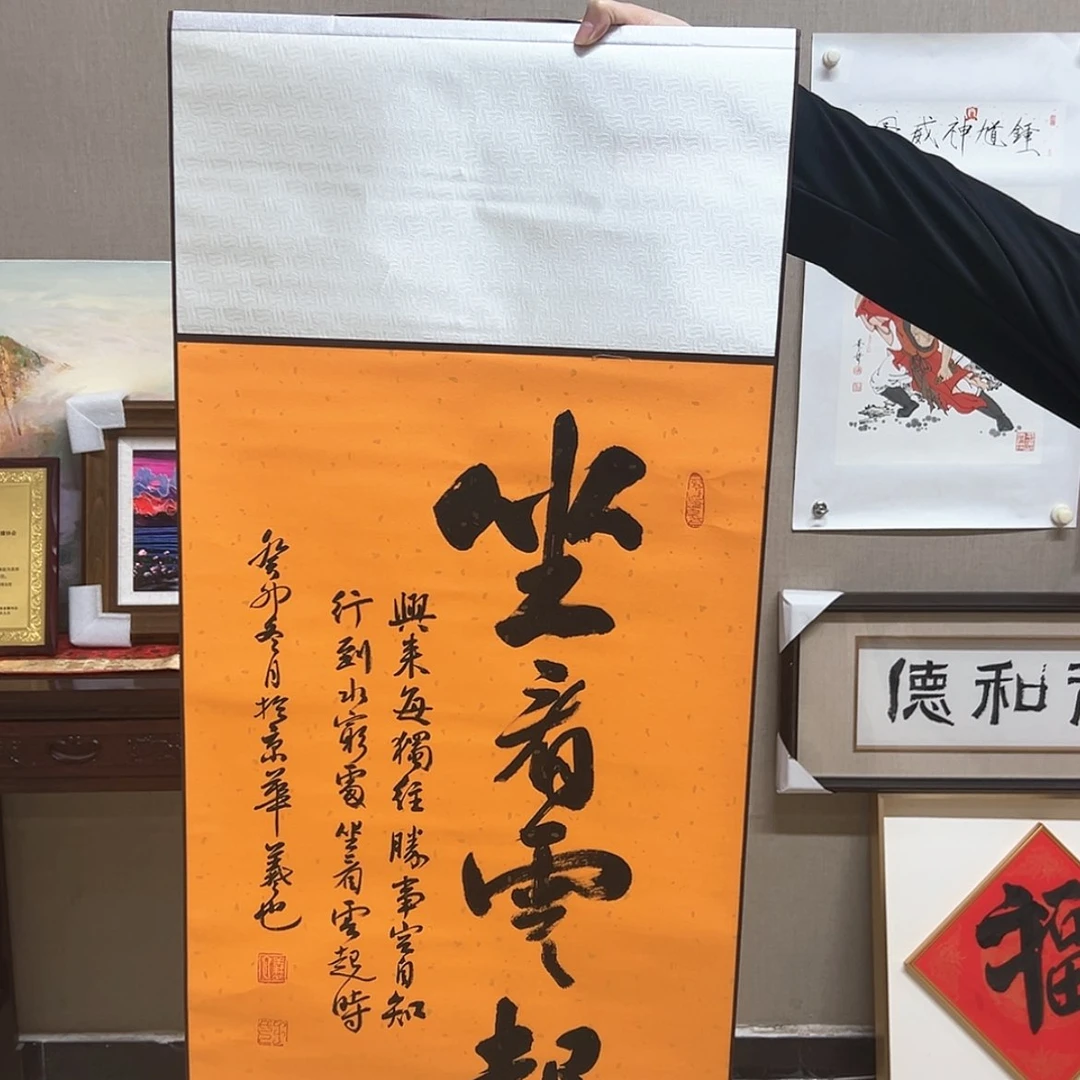 坐看雲起
興來每獨往勝事空自知
行到水窮處坐看雲起時
癸卯冬月於京華羲也
鍾馗神威
德和
福